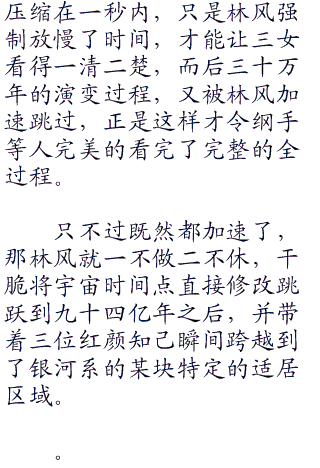 压缩在一秒内，只是林风强
制放慢了时间，才能让三女
看得一清二楚，而后三十万
年的演变过程，又被林风加
速跳过，正是这样才令纲手
等人完美的看完了完整的全
过程。
只不过既然都加速了，
那林风就一不做二不休，干
脆将宇宙时间点直接修改跳
跃到九十四亿年之后，并带
着三位红颜知己瞬间跨越到
了银河系的某块特定的适居
区域。
。